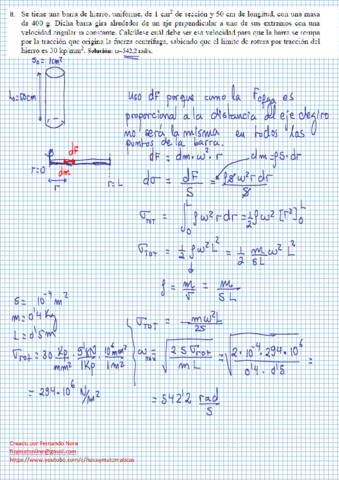 8. Se tiene una barra de hierro, uniforme, de 1 cm² de sección y 50 cm de longitud, con una masa
de 400 g. Dicha barra gira alrededor de un eje perpendicular a uno de sus extremos con una
velocidad angular ω constante. Calcúlese cuál debe ser esa velocidad para que la barra se rompa
por la tracción que origina la fuerza centrífuga, sabiendo que el límite de rotura por tracción del
hierro es 30 kp·mm⁻². Solución: ω=542,2 rad/s.
S₀ = 1cm²
L₀=50cm
Uso dF porque como la Fcfga es
proporcional a la distancia al eje de giro
no será la misma en todos los
puntos de la barra.
dF
dm
r=0 r r=L
dF = dm·ω²·r dm=ρS·dr
dσ = dF/S = ρSω²rdr/S
σTOT = ∫₀ᴸ ρω²rdr = 1/2 ρω² [r²]₀ᴸ
σTOT = 1/2 ρω²L² = 1/2 m/SL ω² L²
ρ = m/V = m/SL
S = 10⁻⁴ m²
m = 0'4 Kg
L = 0'5 m
σrot = 30 Kp/mm² · 9'8N/1Kp · 10⁶mm²/1m²
= 294·10⁶ N/m²
σTOT = mω²L/2S
ωmax = √(2Sσrot/mL) = √(2·10⁻⁴·294·10⁶/0'4·0'5) =
= 542'2 rad/s
Creado por Fernando Nora
fizxmatonline@gmail.com
https://www.youtube.com/c/fisicaymatematicas